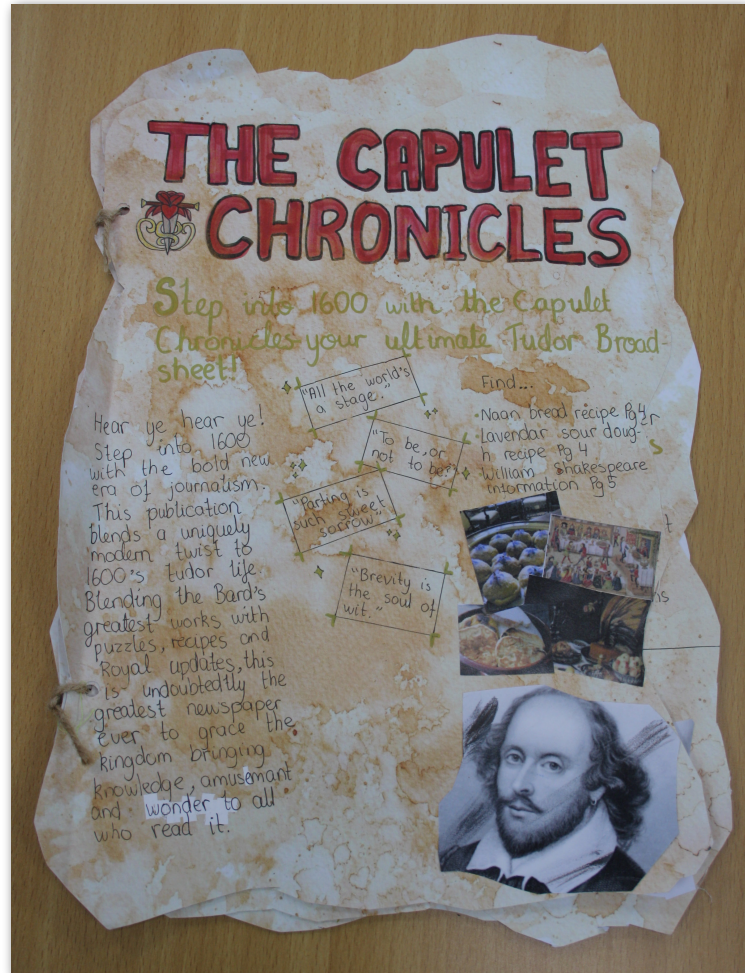 THE CAPULET
CHRONICLES
Step into 1600 with the Capulet
Chronicles your ultimate Tudor Broad-
sheet!
Hear ye hear ye!
Step into 1600
with the bold new
era of journalism.
This publication
blends a uniquely
modern twist to
1600's tudor life.
Blending the Bard's
greatest works with
puzzles, recipes and
Royal updates, this
is undoubtedtly the
greatest newspaper
ever to grace the
kingdom bringing
knowledge, amusemant
and wonder to all
who read it.
"All the world's
a stage."
"To be, or
not to be?"
"Parting is
such sweet
sorrow."
"Brevity is
the soul of
wit."
Find...
·Naan bread recipe Pg 4
·Lavendar sour doug-
h recipe Pg 4
·William Shakespeare
information Pg 5